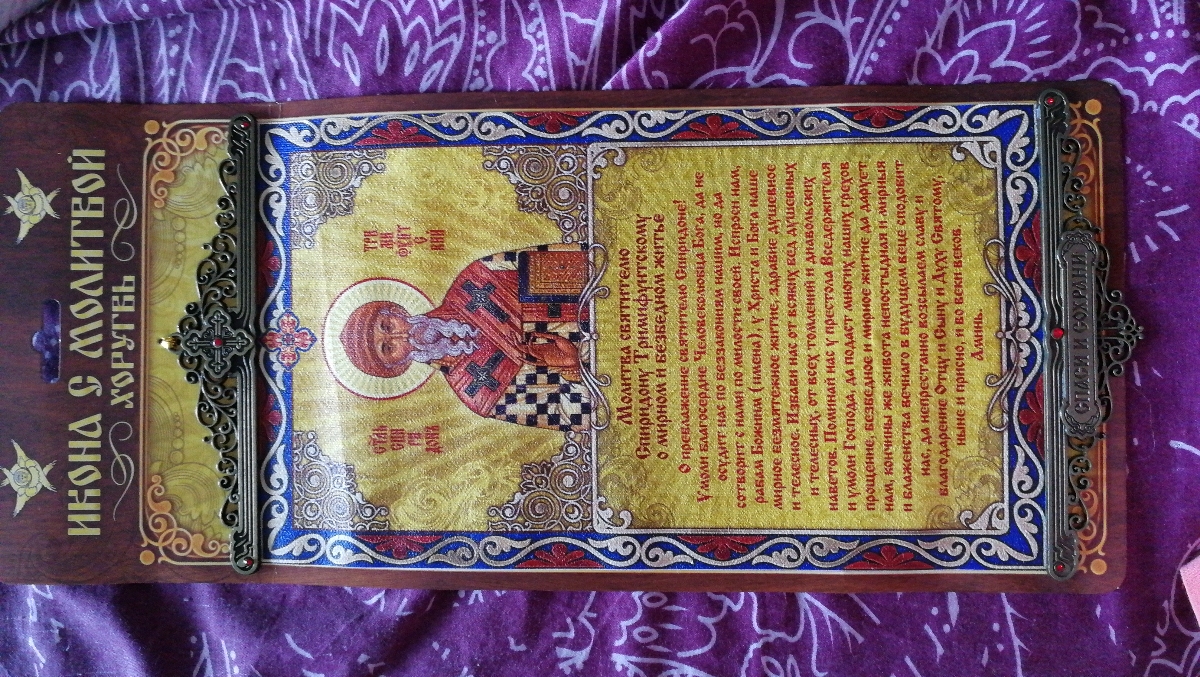 ИКОНА С МОЛИТВОЙ
ХОРУГВЬ
СВТЬ
СПИ
РИ
ДОНЪ
ТРИ
МИ
ФУНТ
С
КИЙ
Молитва святителю
Спиридону Тримифунтскому
о мирном и безбедном житье
О преблаженне святителю Спиридоне!
Умоли благосердие Человеколюбца Бога, да не
осудит нас по беззакониям нашим, но да
сотворит с нами по милости Своей. Испроси нам,
рабам Божиим (имена), у Христа и Бога наше
мирное безмятежное житие, здравие душевное
и телесное. Избави нас от всяких бед душевных
и телесных, от всех томлений и диавольских
наветов. Поминай нас у престола Вседержителя
и умоли Господа, да подаст многих наших грехов
прощение, безбедное и мирное житие да дарует
нам, кончины же живота непостыдныя и мирныя
и блаженства вечного в будущем веце сподобит
нас, да непрестанно возсылаем славу и
благодарение Отцу и Сыну и Духу Святому,
ныне и присно, и во веки веков.
Аминь.
СПАСИ И СОХРАНИ